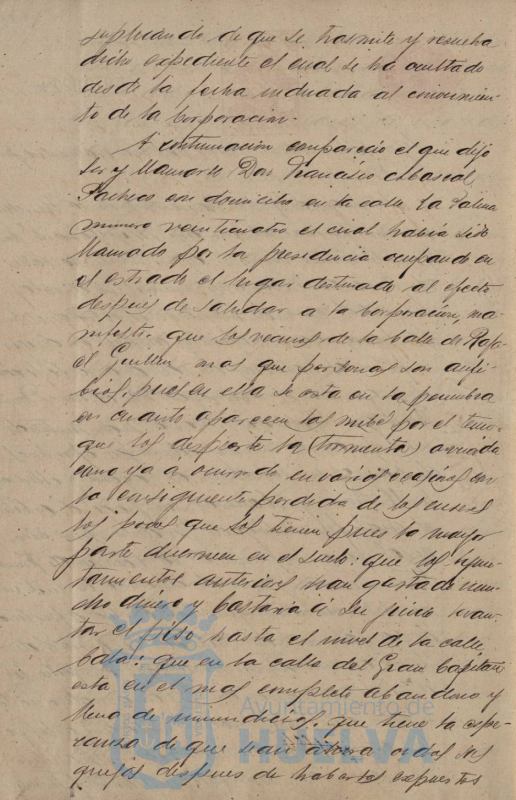 suplicando de que se trasmite y resuelva
dicho expediente el cual se ha ocultado
desde la fecha indicada al conocimien-
to de la Corporacion.
A continuacion comparecio el que dijo
ser y llamarse Don Francisco Cabascal
Pacheco con domicilio en la calle La Palma
numero veinticuatro el cual habia sido
llamado por la presidencia ocupando en
el estrado el lugar destinado al efecto
despues de saludar a la Corporacion, ma-
nifestó: que los vecinos de la calle de Rafa-
el Guillen mas que personas son anfi-
bios, pues en ella se esta en la penumbra
en cuanto aparecen las nubes por el temor
que los despierte la (tormenta) avenida
como ya a ocurrido en varias ocasiones con
la consiguiente perdida de los enseres
los pocos que los tienen pues la mayor
parte duermen en el suelo: que los Ayun-
tamientos anteriores han gastado mu-
cho dinero y bastaria a su juicio levan-
tar el piso hasta el nivel de la calle
: que en la calle del Gran Capitan
esta en el mas completo abandono y
llena de inmundicias, que tiene la espe-
ranza de que sean las
quejas despues de haberlas expuestas
Ayuntamiento de
HUELVA